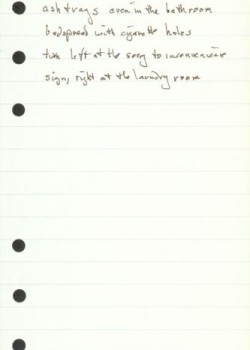 ashtrays even in the bathroom
bedspread with cigarette holes
turn left at the sorry to inconvenience
sign, right at the laundry room